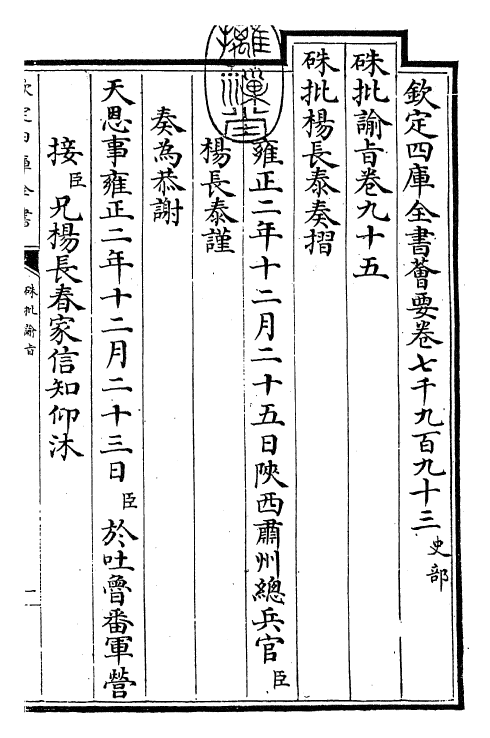 欽定四庫全書薈要卷七千九百九十三 史部
硃批諭旨卷九十五
硃批楊長泰奏摺
雍正二年十二月二十五日陜西肅州總兵官臣
楊長泰謹
奏為恭謝
天恩事雍正二年十二月二十三日臣於吐魯番軍營
接臣兄楊長春家信知仰沐
硃批諭旨